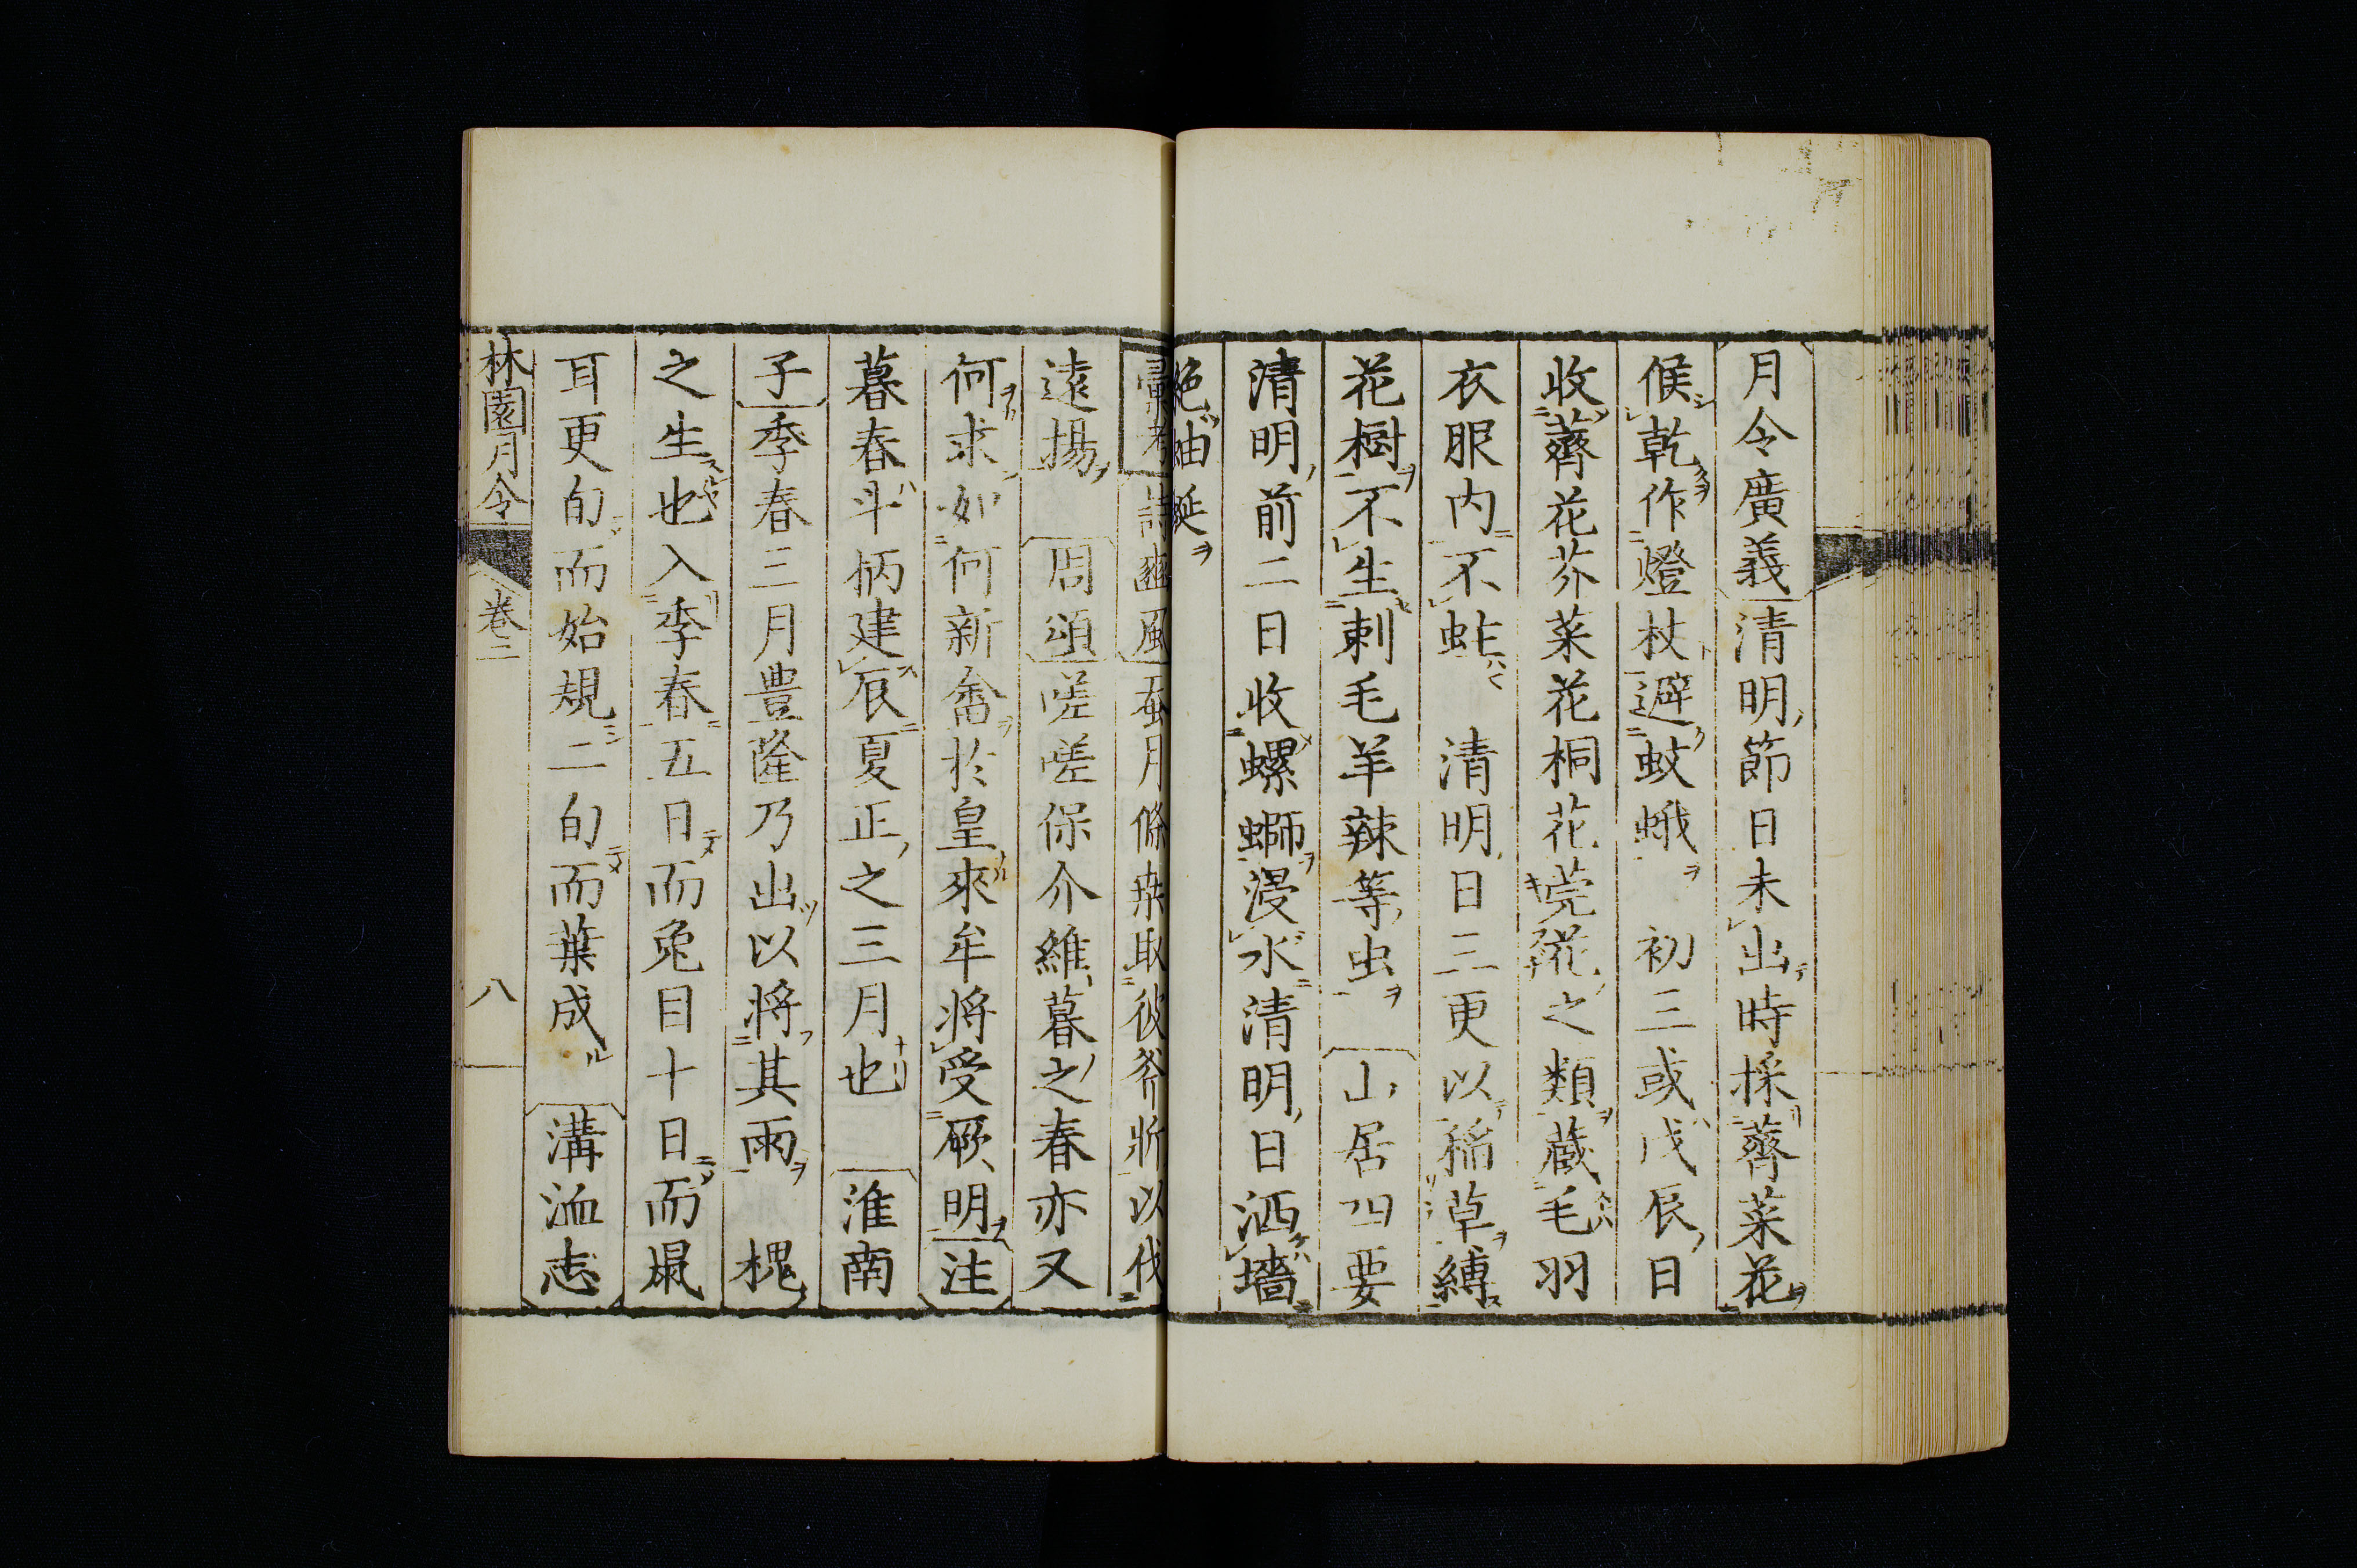 月令廣義清明節日未出時採薺菜花
候乾作燈杖避蚊蛾　初三或戊辰日
收薺花芥菜花桐花芫花之類蔵毛羽
衣服内不蛀　清明日三更以稲草縛
花樹不生刺毛羊辣等虫　山居四要
清明前二日收螺螄浸水清明日洒墻
絶蚰蜒
彙考詩豳風蚕月條桒取彼斧斨以伐
遠揚　周頌嗟嗟保介維暮之春亦又
何求如何新畬於皇來牟将受厥明注
暮春斗柄建辰夏正之三月也　淮南
子季春三月豊隆乃出以将其雨　槐
之生也入季春五日而兎目十日而鼠
耳更旬而始規二旬而葉成　溝洫志
林園月令　卷二　八